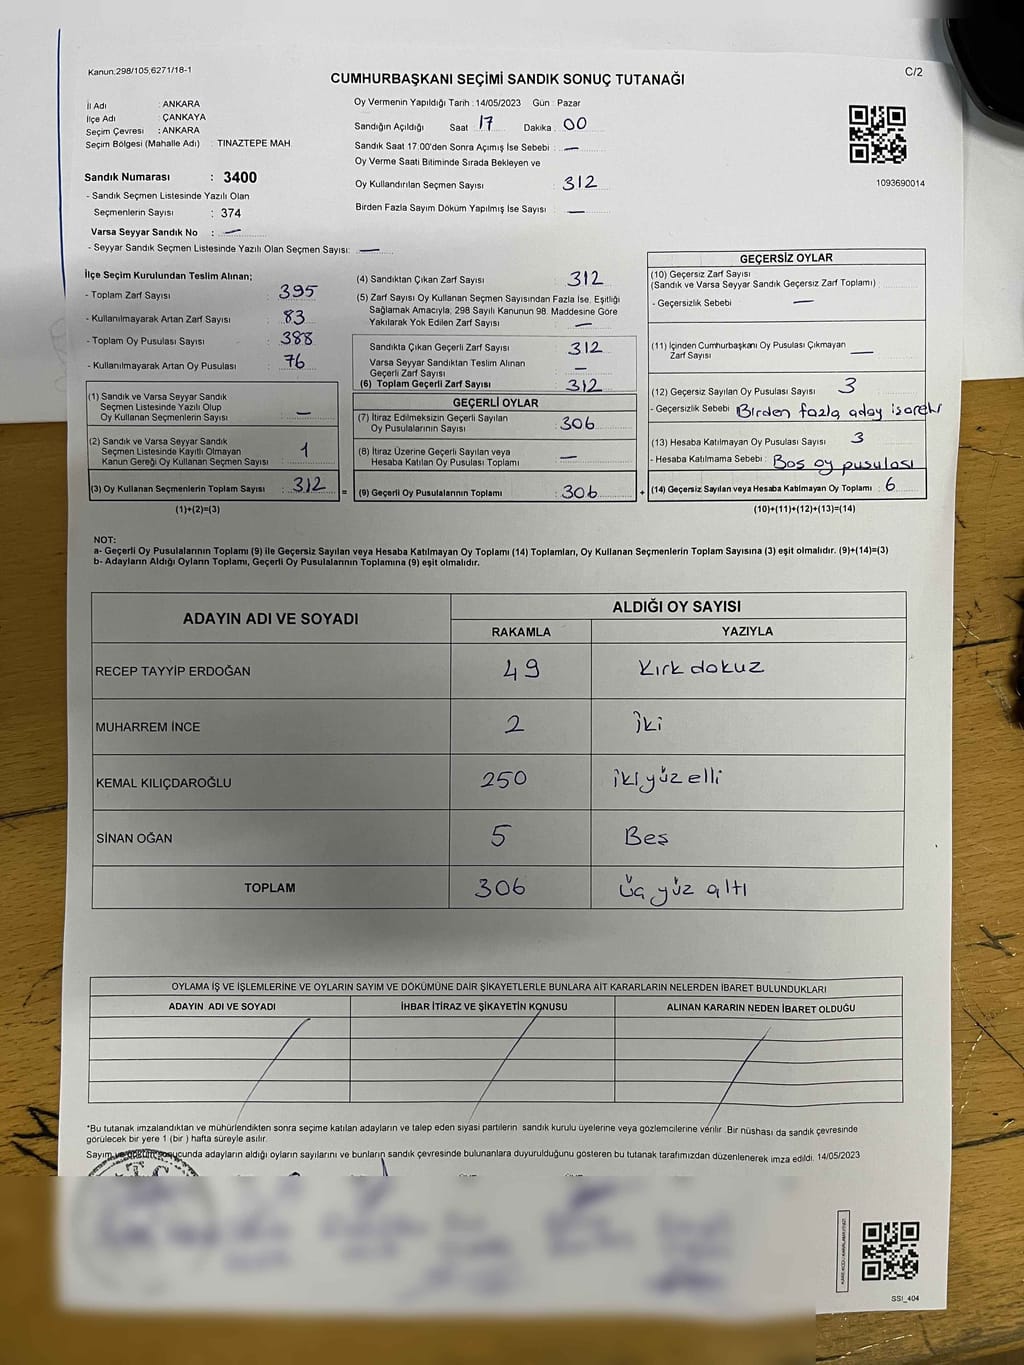 Kanun;298/105,6271/18-1
CUMHURBAŞKANI SEÇİMİ SANDIK SONUÇ TUTANAĞI
C/2
İl Adı : ANKARA
İlçe Adı : ÇANKAYA
Seçim Çevresi : ANKARA
Seçim Bölgesi (Mahalle Adı) : TINAZTEPE MAH.
Sandık Numarası : 3400
- Sandık Seçmen Listesinde Yazılı Olan
Seçmenlerin Sayısı : 374
Varsa Seyyar Sandık No : —
- Seyyar Sandık Seçmen Listesinde Yazılı Olan Seçmen Sayısı: —
Oy Vermenin Yapıldığı Tarih : 14/05/2023 Gün : Pazar
Sandığın Açıldığı Saat 17 Dakika : 00
Sandık Saat 17:00'den Sonra Açımış İse Sebebi : —
Oy Verme Saati Bitiminde Sırada Bekleyen ve
Oy Kullandırılan Seçmen Sayısı : 312
Birden Fazla Sayım Döküm Yapılmış İse Sayısı : —
1093690014
İlçe Seçim Kurulundan Teslim Alınan;
- Toplam Zarf Sayısı : 395
- Kullanılmayarak Artan Zarf Sayısı : 83
- Toplam Oy Pusulası Sayısı : 388
- Kullanılmayarak Artan Oy Pusulası : 76
(1) Sandık ve Varsa Seyyar Sandık
Seçmen Listesinde Yazılı Olup
Oy Kullanan Seçmenlerin Sayısı : —
(2) Sandık ve Varsa Seyyar Sandık
Seçmen Listesinde Kayıtlı Olmayan
Kanun Gereği Oy Kullanan Seçmen Sayısı : 1
(3) Oy Kullanan Seçmenlerin Toplam Sayısı : 312
(1)+(2)=(3)
(4) Sandıktan Çıkan Zarf Sayısı : 312
(5) Zarf Sayısı Oy Kullanan Seçmen Sayısından Fazla İse, Eşitliği
Sağlamak Amacıyla; 298 Sayılı Kanunun 98. Maddesine Göre
Yakılarak Yok Edilen Zarf Sayısı : —
Sandıkta Çıkan Geçerli Zarf Sayısı : 312
Varsa Seyyar Sandıktan Teslim Alınan
Geçerli Zarf Sayısı : —
(6) Toplam Geçerli Zarf Sayısı : 312
GEÇERLİ OYLAR
(7) İtiraz Edilmeksizin Geçerli Sayılan
Oy Pusulalarının Sayısı : 306
(8) İtiraz Üzerine Geçerli Sayılan veya
Hesaba Katılan Oy Pusulası Toplamı : —
= (9) Geçerli Oy Pusulalarının Toplamı : 306
GEÇERSİZ OYLAR
(10) Geçersiz Zarf Sayısı
(Sandık ve Varsa Seyyar Sandık Geçersiz Zarf Toplamı) :
- Geçersizlik Sebebi : —
(11) İçinden Cumhurbaşkanı Oy Pusulası Çıkmayan
Zarf Sayısı : —
(12) Geçersiz Sayılan Oy Pusulası Sayısı : 3
- Geçersizlik Sebebi : Birden fazla aday isareti
(13) Hesaba Katılmayan Oy Pusulası Sayısı : 3
- Hesaba Katılmama Sebebi : Boş oy pusulası
+ (14) Geçersiz Sayılan veya Hesaba Katılmayan Oy Toplamı : 6
(10)+(11)+(12)+(13)=(14)
NOT:
a- Geçerli Oy Pusulalarının Toplamı (9) ile Geçersiz Sayılan veya Hesaba Katılmayan Oy Toplamı (14) Toplamları, Oy Kullanan Seçmenlerin Toplam Sayısına (3) eşit olmalıdır. (9)+(14)=(3)
b- Adayların Aldığı Oyların Toplamı, Geçerli Oy Pusulalarının Toplamına (9) eşit olmalıdır.
ADAYIN ADI VE SOYADI ALDIĞI OY SAYISI
RAKAMLA YAZIYLA
RECEP TAYYİP ERDOĞAN 49 Kırk dokuz
MUHARREM İNCE 2 İki
KEMAL KILIÇDAROĞLU 250 iki yüz elli
SİNAN OĞAN 5 Beş
TOPLAM 306 Üç yüz altı
OYLAMA İŞ VE İŞLEMLERİNE VE OYLARIN SAYIM VE DÖKÜMÜNE DAİR ŞİKAYETLERLE BUNLARA AİT KARARLARIN NELERDEN İBARET BULUNDUKLARI
ADAYIN ADI VE SOYADI İHBAR İTİRAZ VE ŞİKAYETİN KONUSU ALINAN KARARIN NEDEN İBARET OLDUĞU
*Bu tutanak imzalandıktan ve mühürlendikten sonra seçime katılan adayların ve talep eden siyasi partilerin sandık kurulu üyelerine veya gözlemcilerine verilir .Bir nüshası da sandık çevresinde
görülecek bir yere 1 (bir ) hafta süreyle asılır.
Sayım ve döküm sonucunda adayların aldığı oyların sayılarını ve bunların sandık çevresinde bulunanlara duyurulduğunu gösteren bu tutanak tarafımızdan düzenlenerek imza edildi. 14/05/2023
SSİ_404